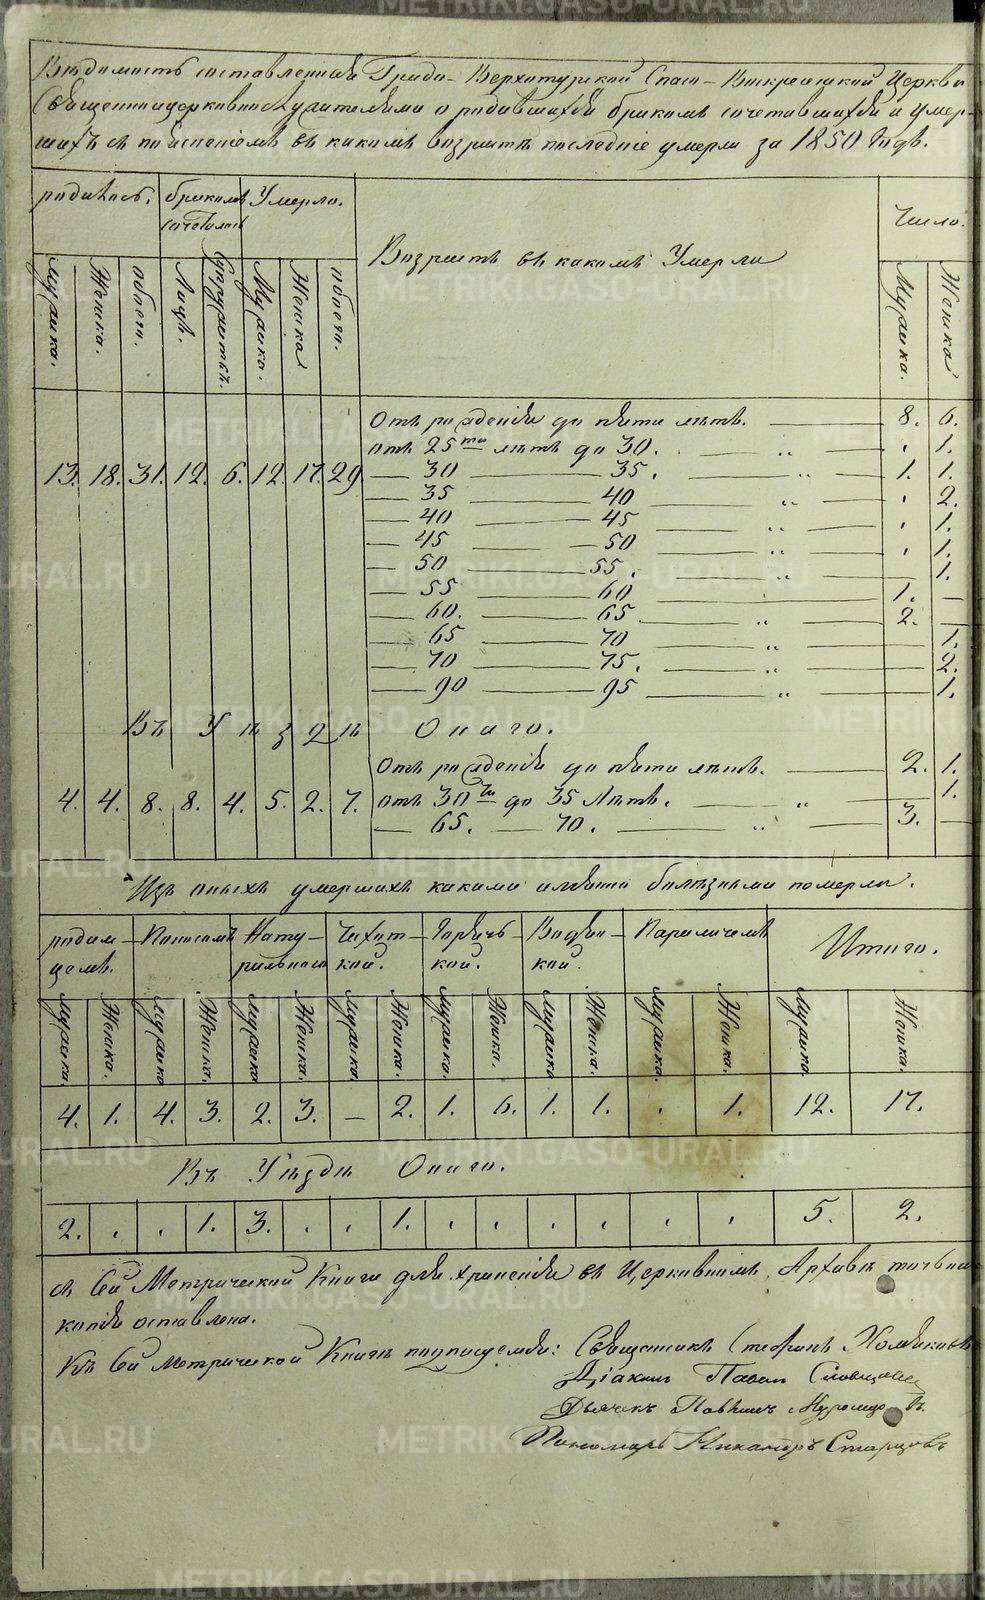 Вѣдомость составленная Градо-Верхотурской Спасо-Воскресенской Церкви
Священноцерковнослужителями о родившихся бракомъ сочетавшихся и умер-
шихъ съ по в какомъ возрастѣ последніе умерли за 1850 Годъ.
родилось. бракомъ сочеталось Умерло. Возрастъ въ какомъ Умерли Число.
Мужска. Женска. обоего. Лицъ. Супружествъ. Мужска. Женска обоего. Мужска. Женска
Отъ рожденія до пяти лѣтъ. 8. 6.
отъ 25ти лѣтъ до 30. „ . 1.
13. 18. 31. 12. 6. 12. 17. 29 — 30 — 35. „ 1. 1.
— 35 — 40 „ . 2.
— 40 — 45 „ . 1.
— 45 — 50 „ . 1.
— 50 — 55. „ 1.
— 55 — 60 1. —
— 60. — 65 „ 2. —
— 65 — 70 „ 1.
— 70 — 75. „ 2.
— 90 — 95 „ 1.
Въ Уѣздѣ Онаго.
Отъ рожденія до пяти лѣтъ. 2. 1.
4. 4. 8. 8. 4. 5. 2. 7. отъ 30ти до 35 Лѣтъ. „ 1.
— 65. — 70. „ 3. —
Изъ оныхъ умершихъ какими именно болѣзньми померли.
родимцемъ. Поносомъ Натурально Чахоткой. Горячькой. Водянкой. Параличемъ Итого.
Мужска. Женска. Мужска Женска. Мужска Женска. Мужска. Женска. Мужска. Женска. Мужска Женска. Мужска. Женска. Мужска Женска.
4. 1. 4. 3. 2. 3. — 2. 1. 6. 1. 1. . 1. 12. 17.
Въ Уѣздѣ Онаго.
2. . . 1. 3. . . 1. . . . . . . 5. 2.
съ Сей Метрической Книги для храненія въ Церковномъ Архивѣ точная
копія оставлена.
Къ Сей Метрической Книгѣ подписуемся: Священникъ Стефанъ Хомяковъ
Діаконъ Павелъ Словцовъ
Дьячекъ Павелъ Муромцовъ
Пономарь Никаноръ Старцовъ
METRIKI.GASO-URAL.RU